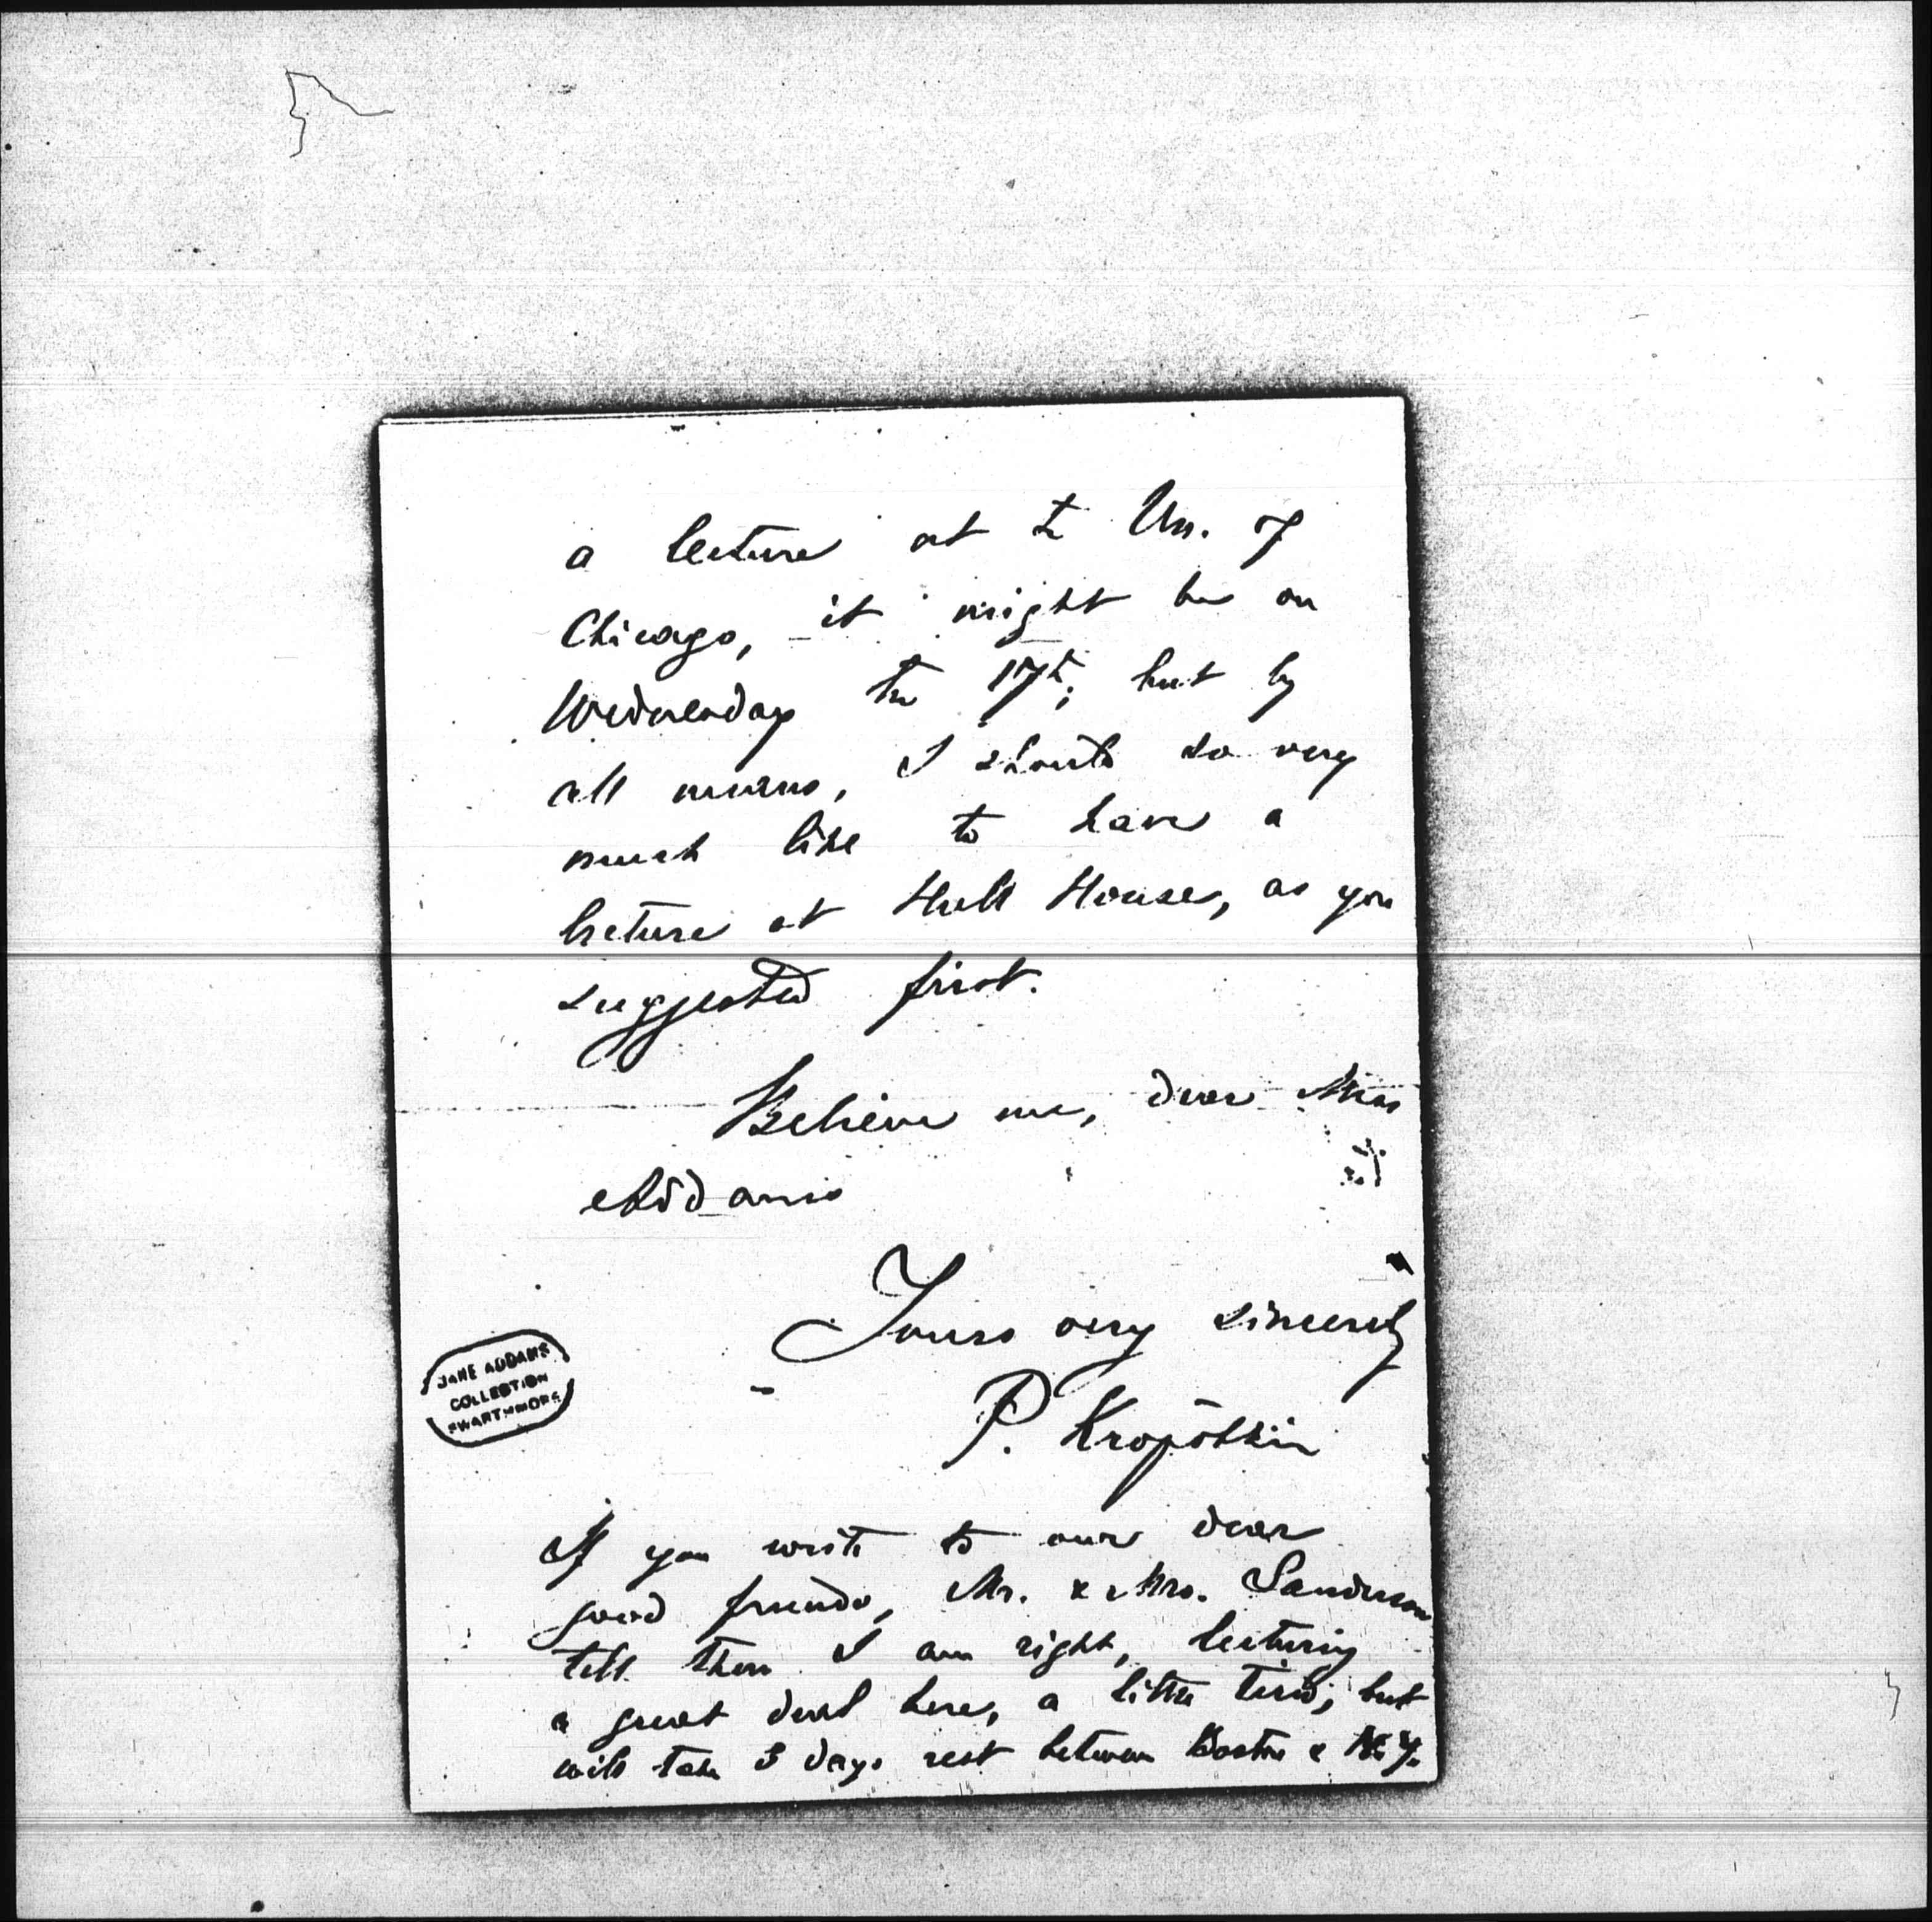 a lecture at t. Un. of
Chicago, it might be on
Wednesday the 17th; but by
all means, I should so very
much like to have a
lecture at Hull House, as you
suggested first.
Believe me, dear Miss
Addams
Yours very sincerely
P. Kropótkin
JANE ADDAMS
COLLECTION
SWARTHMORE
If you write to our dear
good friends, Mr. & Mrs. Sanderson
tell them I am right, lecturing
a great deal here, a little tired, but
will take 3 days rest between Boston & N.Y.